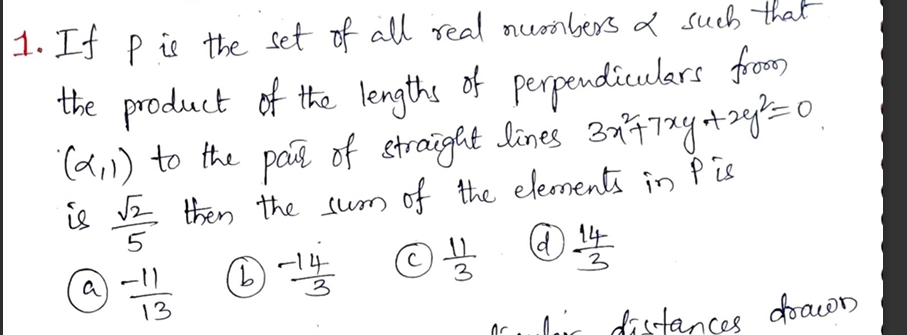 1. If P is the set of all real numbers α such that
the product of the lengths of perpendiculars from
(α,1) to the pair of straight lines 3x²+7xy+2y²=0
is √2/5 then the sum of the elements in P is
ⓐ -11/13 ⓑ -14/3 ⓒ 11/3 ⓓ 14/3
distances drawn